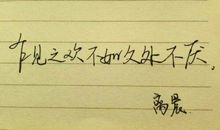 乍见之欢不如久处不厌。
离晨